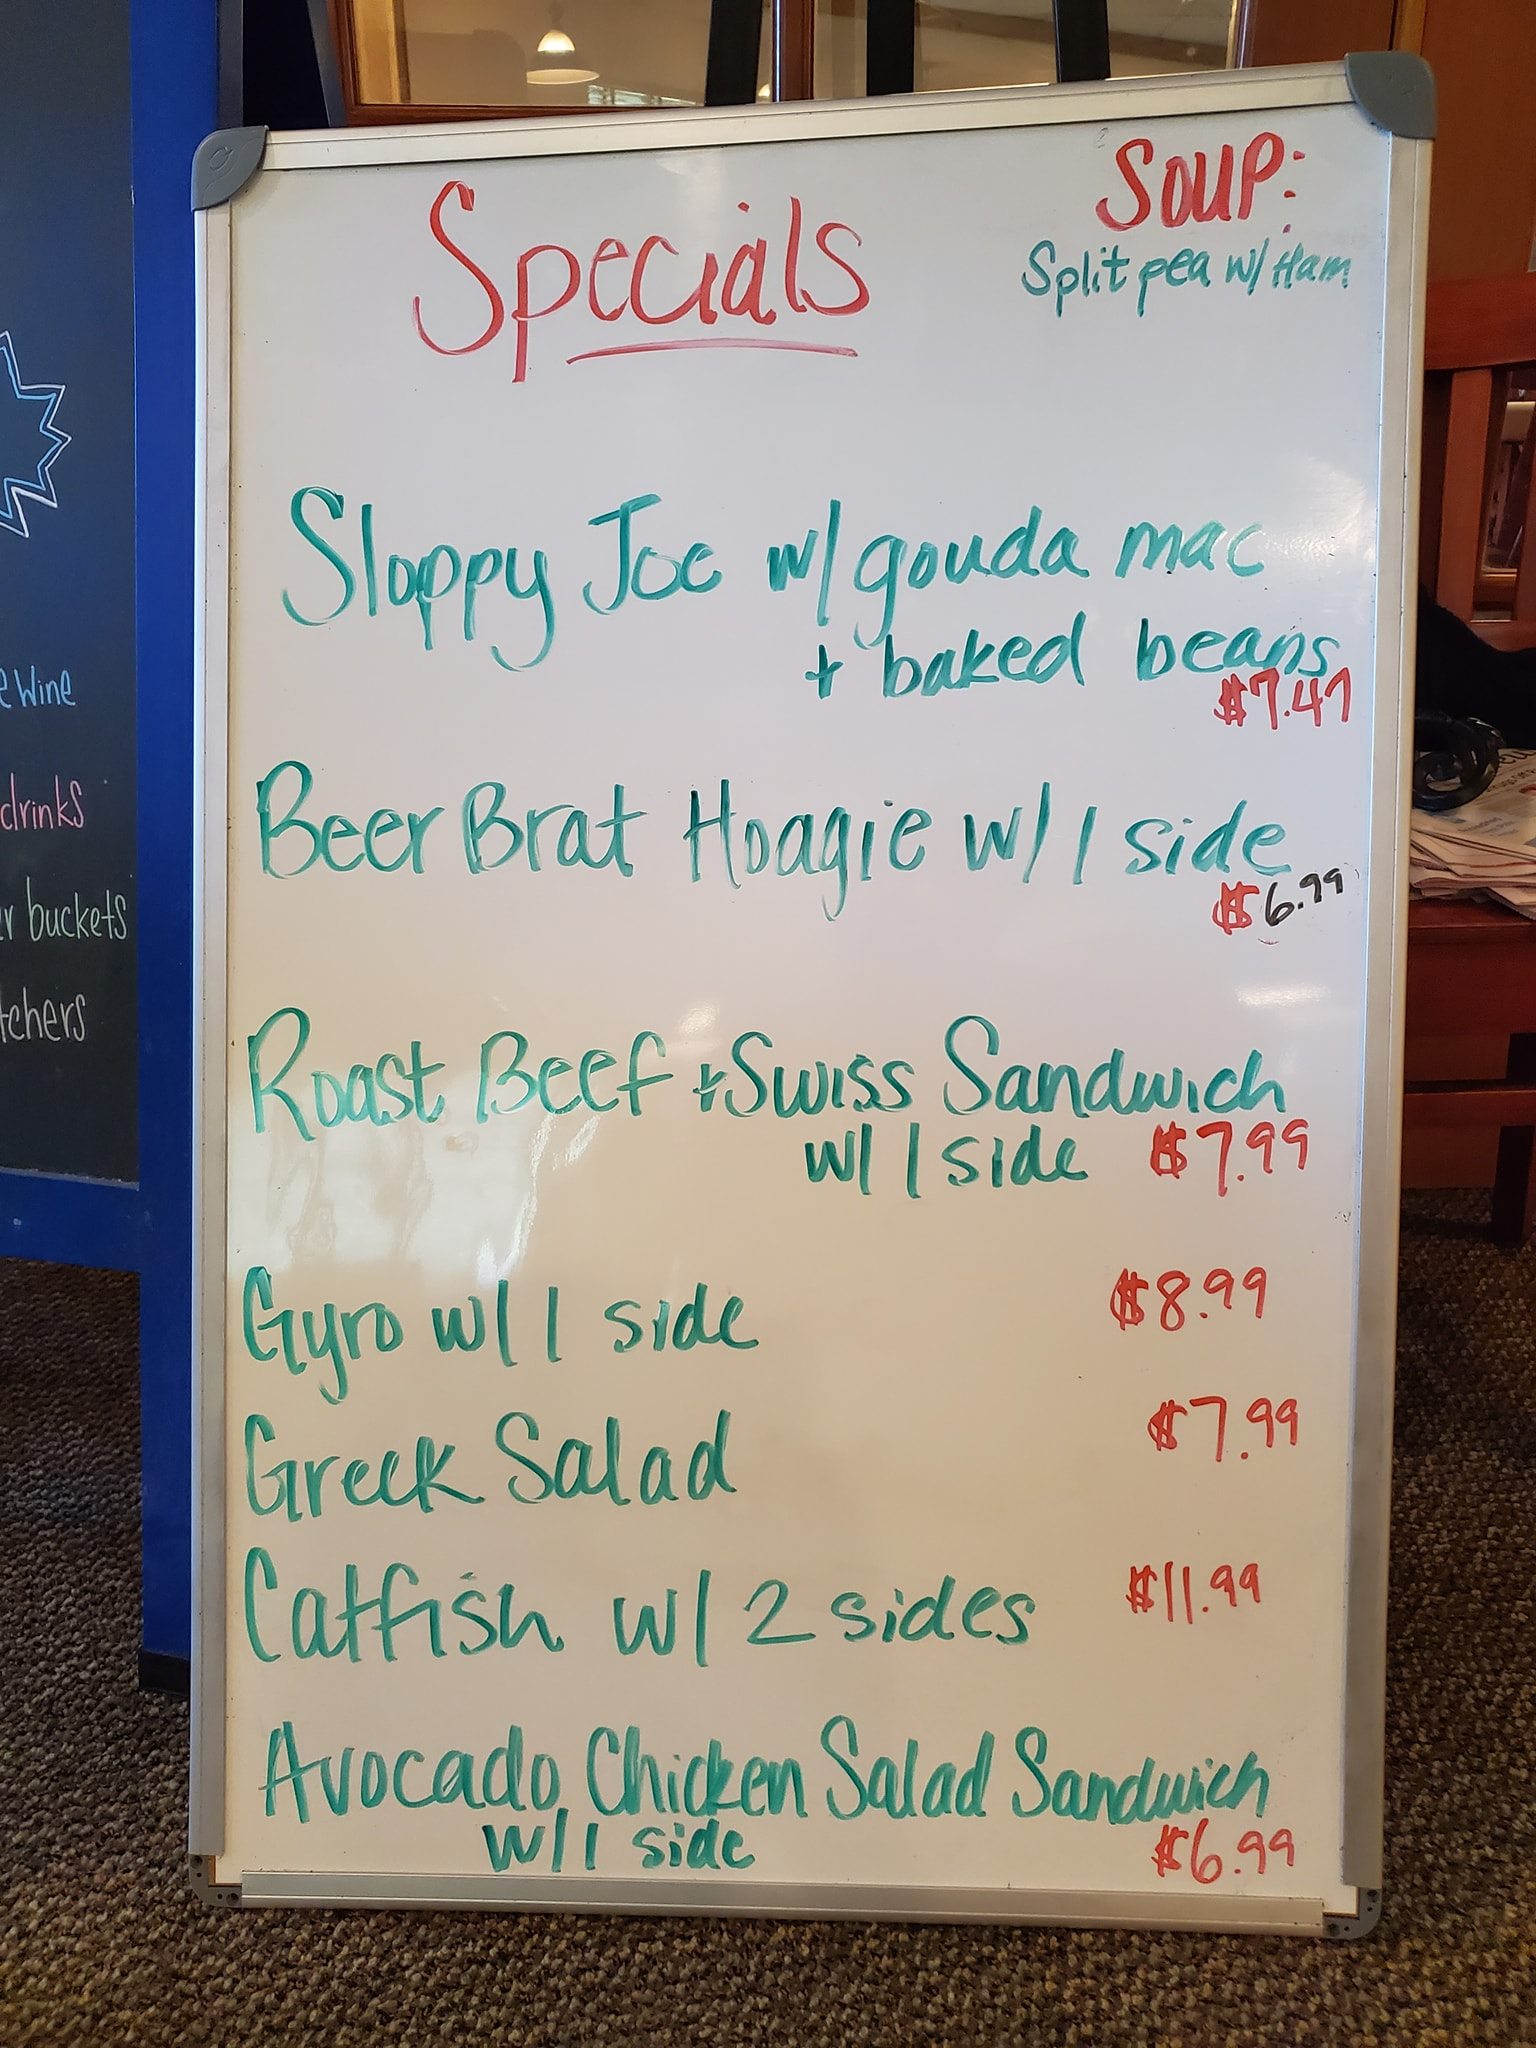 Specials
SOUP:
Split pea w/ Ham
Sloppy Joe w/ gouda mac
+ baked beans
$7.47
Beer Brat Hoagie w/ 1 side
$6.99
Roast Beef + Swiss Sandwich
w/ 1 side $7.99
Gyro w/ 1 side $8.99
Greek Salad $7.99
Catfish w/ 2 sides $11.99
Avocado Chicken Salad Sandwich
w/ 1 side $6.99
wine
drinks
buckets